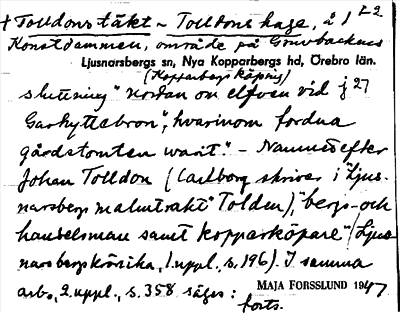 + Tolldonstäkt ~ Tolldons hage, å 1 22
Konstdammen, område på Gruvbackens
Ljusnarsbergs sn, Nya Kopparbergs hd, Örebro län.
(Kopparbergs köping)
sluttning "nordan om elfven vid j 27
Garhyttebron", hvarinom fordna
gårdstomten warit." - Namn efter
Johan Tolldon (Carlborg skriver i "Ljus-
narsbergs malmtrakt" Tolden), "bergs- och
handelsman samt kopparköpare" (Ljus-
narsbergskrönika, 1. uppl., s. 196). I samma
arb., 2. uppl., s. 358 säges: MAJA FORSSLUND 1947
forts.